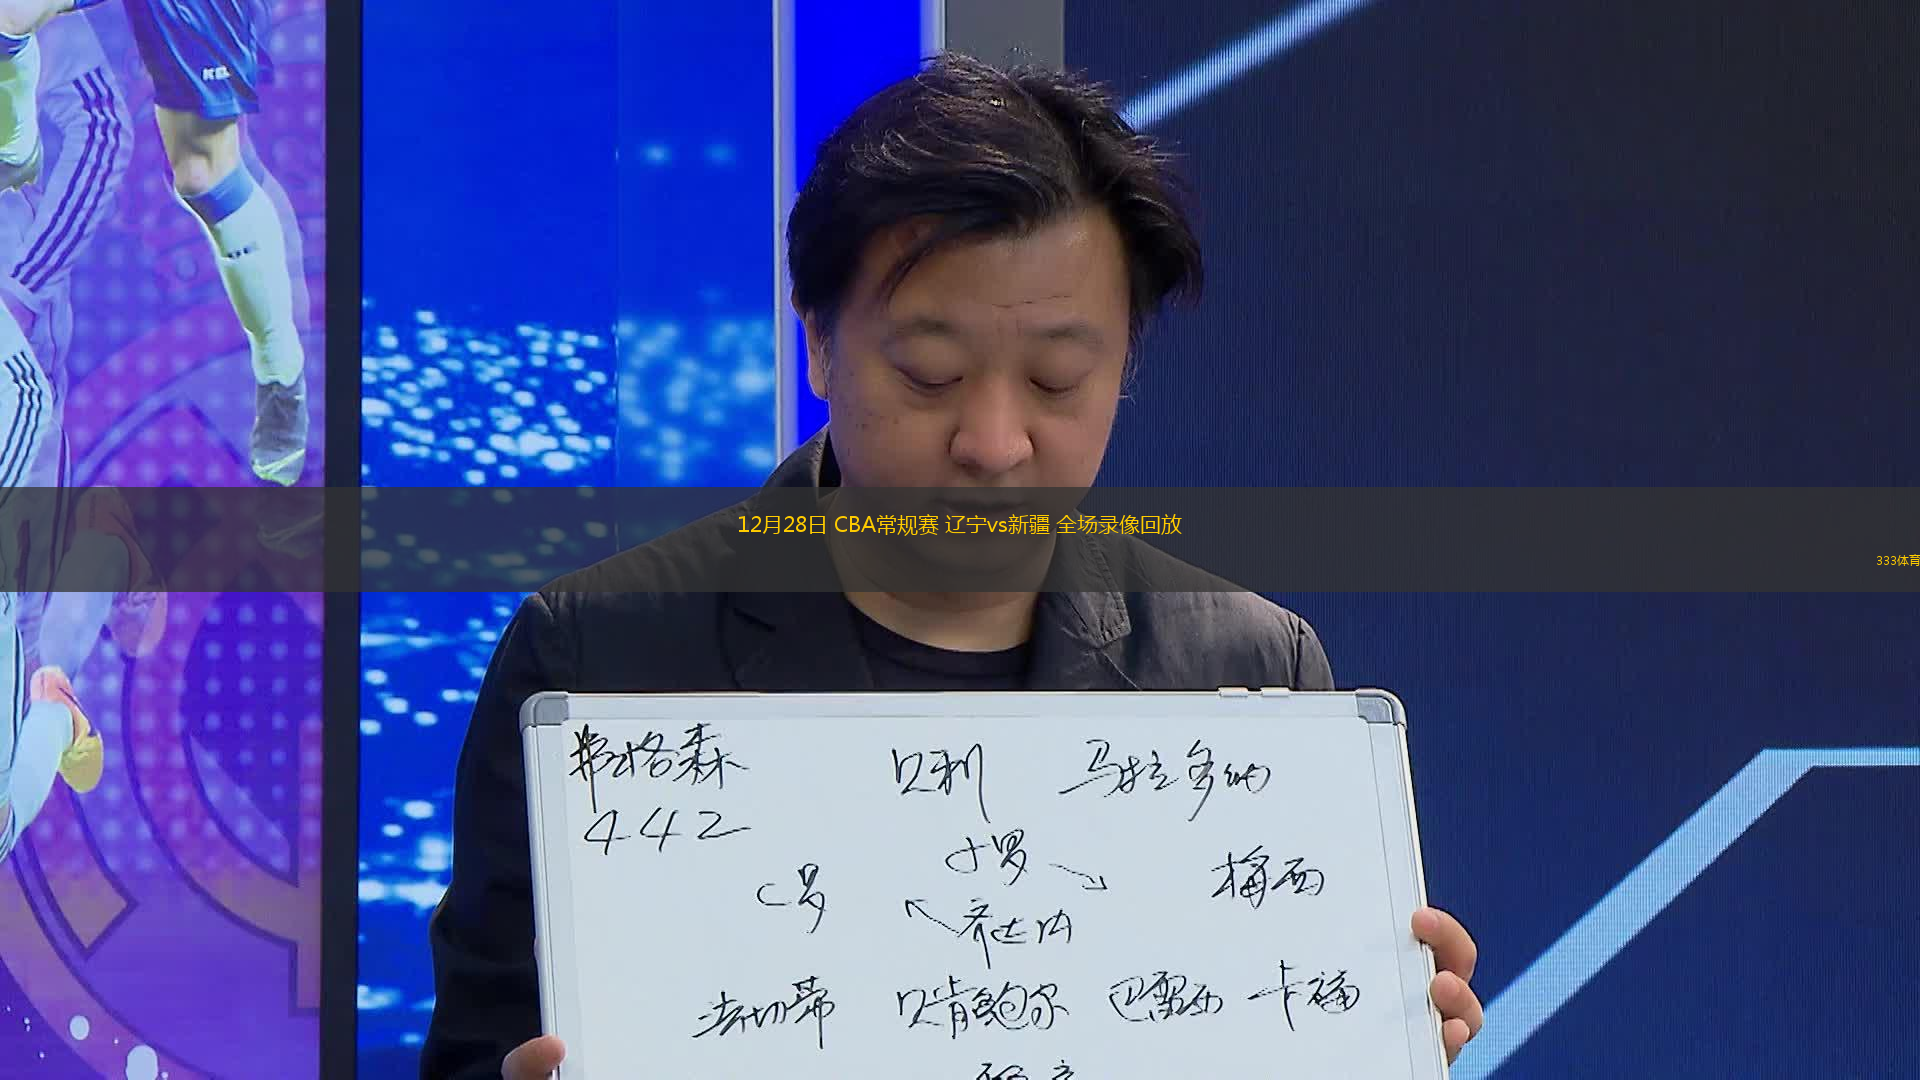 12月28日 CBA常规赛 辽宁vs新疆 全场录像回放
333体育
弗格森 贝利 马拉多纳
442
小罗
C罗 梅西
齐达内
法切蒂 贝肯鲍尔 巴雷西 卡福